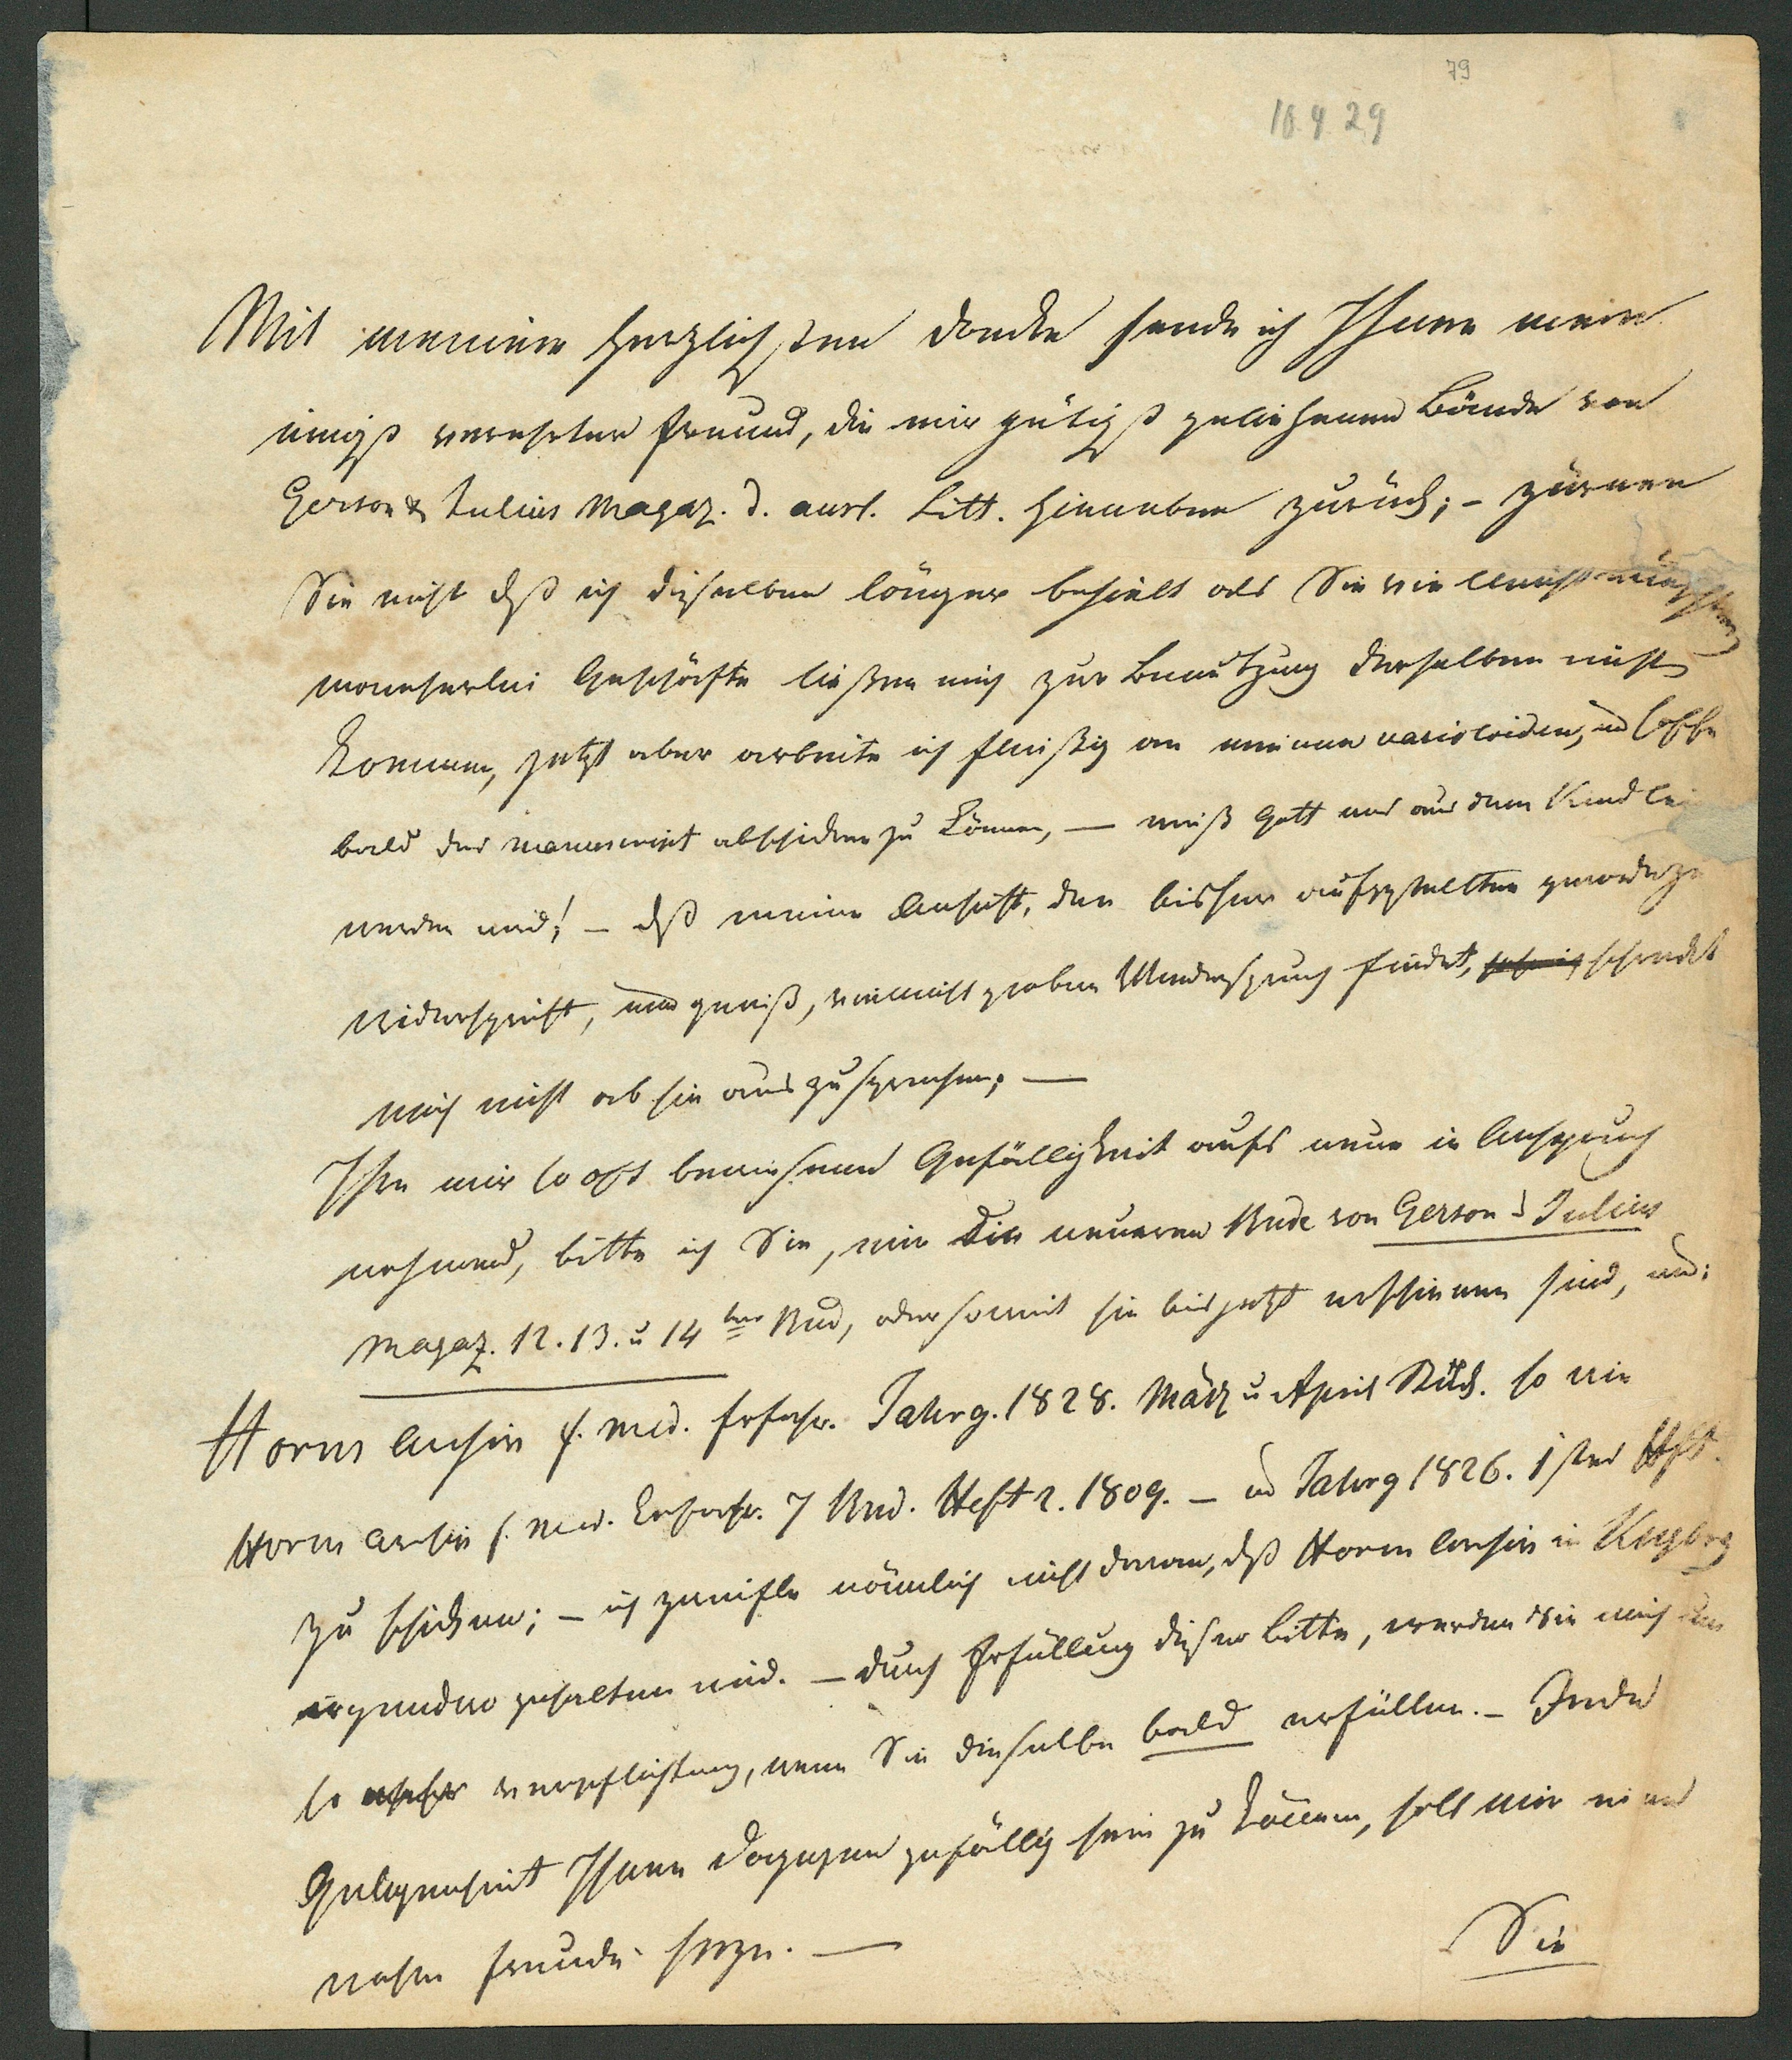 79
10 9 29
Mit meinem herzlichsten Dancke sende ich Ihnen mein
innigst verehrter Freund, die mir gütigst geliehenen Bände von
Gerson & Julius Magaz. d. ausl. Litt. hieneben zurück; – zürnen
Sie nicht dß ich dieselben länger behielt als Sie vielleicht
mancherlei Geschäfte ließen mich zur Benutzung derselben nicht
kommen, jetzt aber arbeite ich fleißig an meinen varioloiden, und hoffe
bald das manuscript abschicken zu können, — weiß Gott was aus dem Kindlein
werden wird! – dß meine Ansicht, den bisher aufgestellten geradezu
widerspricht, und gewiß, vielleicht groben Widerspruch findet, schreckt
mich nicht ab sie auszusprechen; —
Ihre mir so oft bewiesene Gefälligkeit aufs neue in Anspruch
nehmend, bitte ich Sie, mir die neueren Bnde von Gerson & Julius
Magaz. 12. 13. u 14ten Bnd, oder soweit sie bis jetzt erschienen sind, und:
Horns Archiv f. med. Erfahr. Jahrg. 1828. März u April Stück. so wie
Horns Archiv f. med. Erfahr. 7 Bnd. Heft 2. 1809. – und Jahrg 1826. 1stes Hft.
zu schicken; – ich zweifle nämlich nicht daran, dß Horns Archiv in
irgendwo gehalten wird. – durch Erfüllung dieser Bitte, werden Sie mich um
so mehr verpflichten, wenn Sie dieselbe bald erfüllen. – Jede
Gelegenheit Ihnen dagegen gefällig sein zu können, soll mir eine
wahre Freude sein. —
Sie